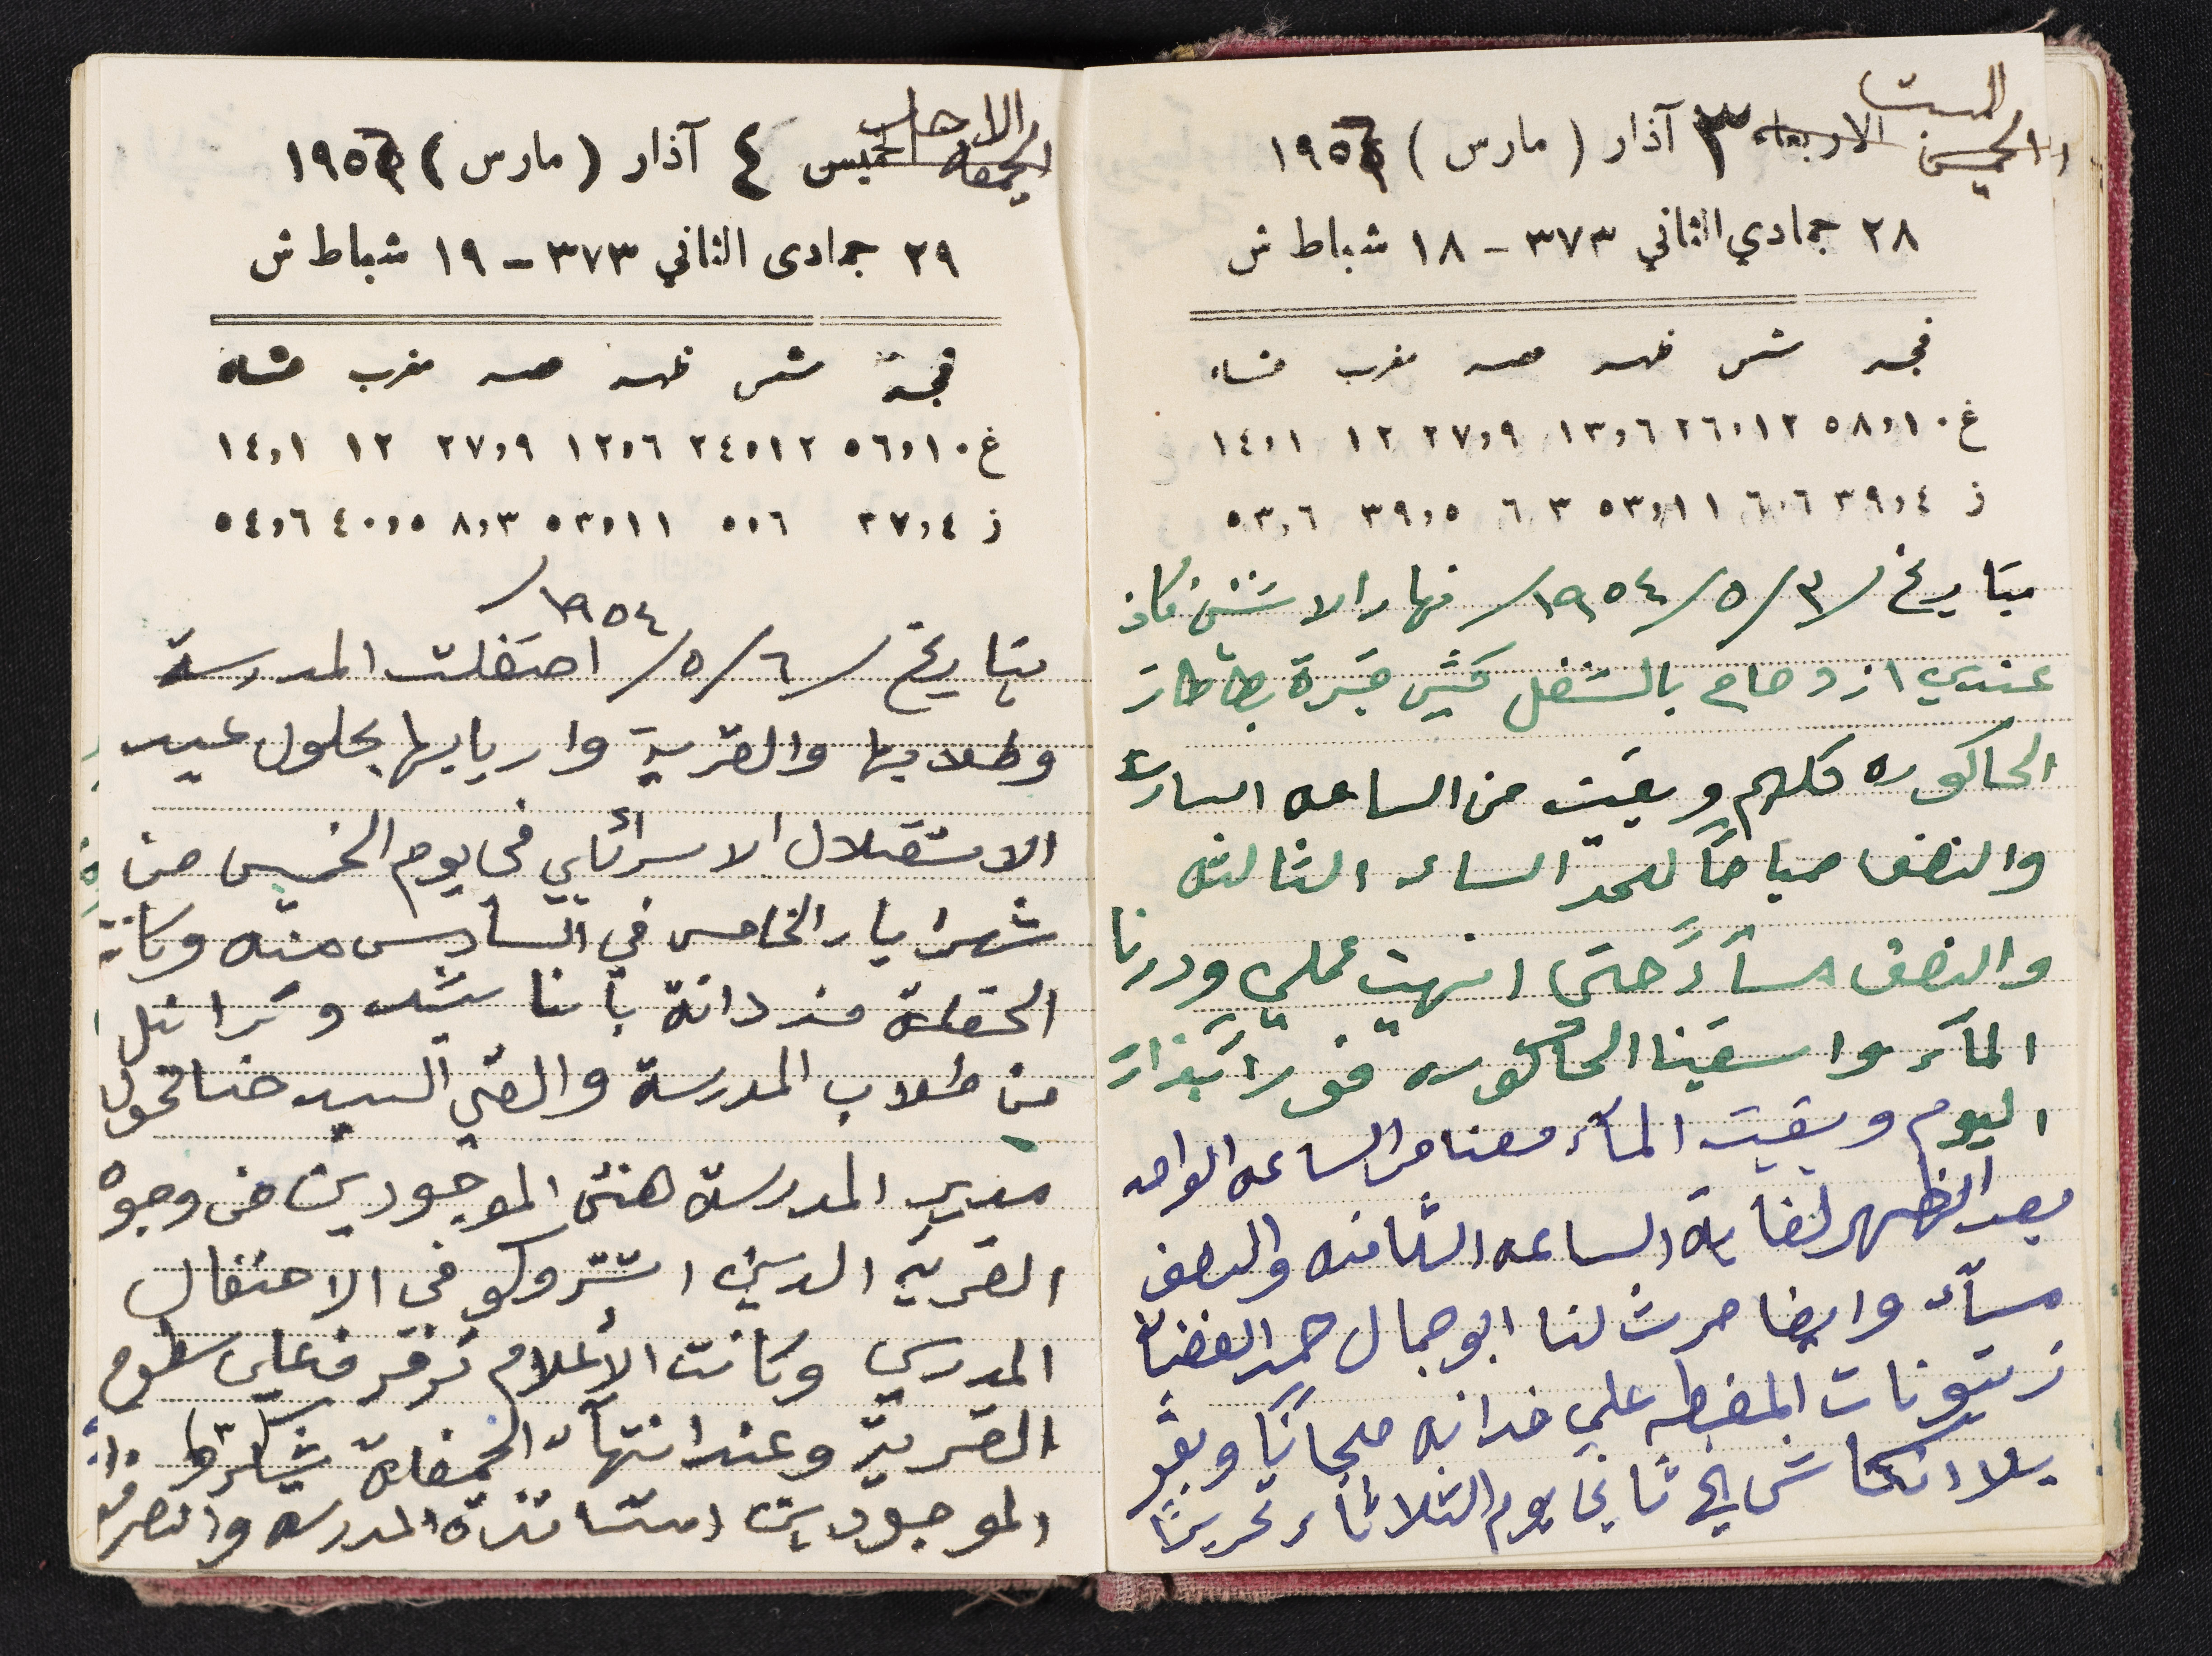 السبت
الخميس الاربعاء ٣ آذار ( مارس ) ١٩٥٦
٢٨ جمادي الثاني ٣٧٣ - ١٨ شباط ش
فجر شمس ظهر عصر مغرب عشاء
غ ٥٨،١٠ ٢٦،١٢ ١٣،٦ ٢٧،٩ ١٢ ١٤،١
ز ٣٩،٤ ٦،٦ ٥٣،١١ ٦ ٣ ٣٩،٥ ٥٣،٦
بتاريخ /٣/٥/١٩٥٤/ نهار الاثنين كان
عندي ازدحام بالشغل بطاطات
الحاكوره كلهم وبقيت من الساعه السادسه
والنصف صباحاً لحد الساعه الثالثه
والنصف مسآءً حتى انهيت عملي ودرنا
المآء واسقينا الحاكوره
اليوم وبقيت المآء معنا من الساعه الواحده
بعد الظهر لغاية الساعه الثامنه والنصف
مسآء وايضا حرث لنا ابو جمال حمد
زيتونات علي مجاناً
يوم الثلاثاء تحريراً
الاحد
الجمعه الخميس ٤ آذار ( مارس ) ١٩٥٦
٢٩ جمادى الثاني ٣٧٣ - ١٩ شباط ش
فجر شمس ظهر عصر مغرب عشاء
غ ٥٦،١٠ ٢٤،١٢ ١٢،٦ ٢٧،٩ ١٢ ١٤،١
ز ٣٧،٤ ٥،٦ ٥٣،١١ ٨،٣ ٤٠،٥ ٥٤،٦
بتاريخ /٦/٥/١٩٥٤/ احتفلت المدرسة
وطلابها والقرية واربابها بحلول عيد
الاستقلال الاسرائيلي في يوم الخميس من
شهر ايار الخامس في السادس منه وكانت
الحفلة مزدانة بأناشيد وتراتيل
من طلاب المدرسة والقى السيد حنا مخول
مدير المدرسة هنئ الموجودين من وجوه
القرية الدين اشتروكو في الاحتفال
المدرسي وكانت الأعلام ترفرف على سطوح
القرية وعند انتهآء الحفلة شكرو
الموجودين استاتذة المدرسه وانصرفو